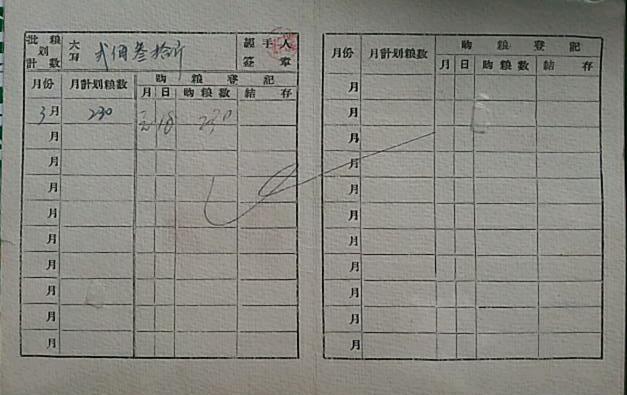 批粮划计数 大写 贰佰叁拾斤 經手人簽章
月份 月計划粮数 購粮登記
月 日 購粮数 結存
3月 230 三 18 230
月
月
月
月
月
月
月
月
月
月份 月計划粮数 購粮登記
月 日 購粮数 結存
月
月
月
月
月
月
月
月
月
月
月